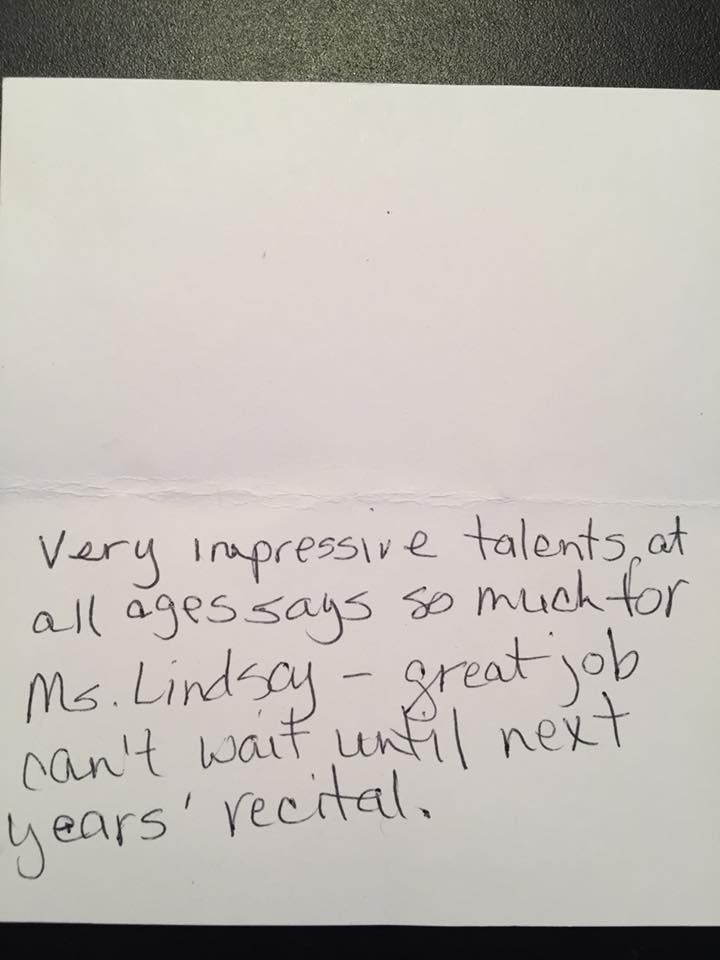 Very impressive talents, at
all ages says so much for
Ms. Lindsay - great job
can't wait until next
years' recital.